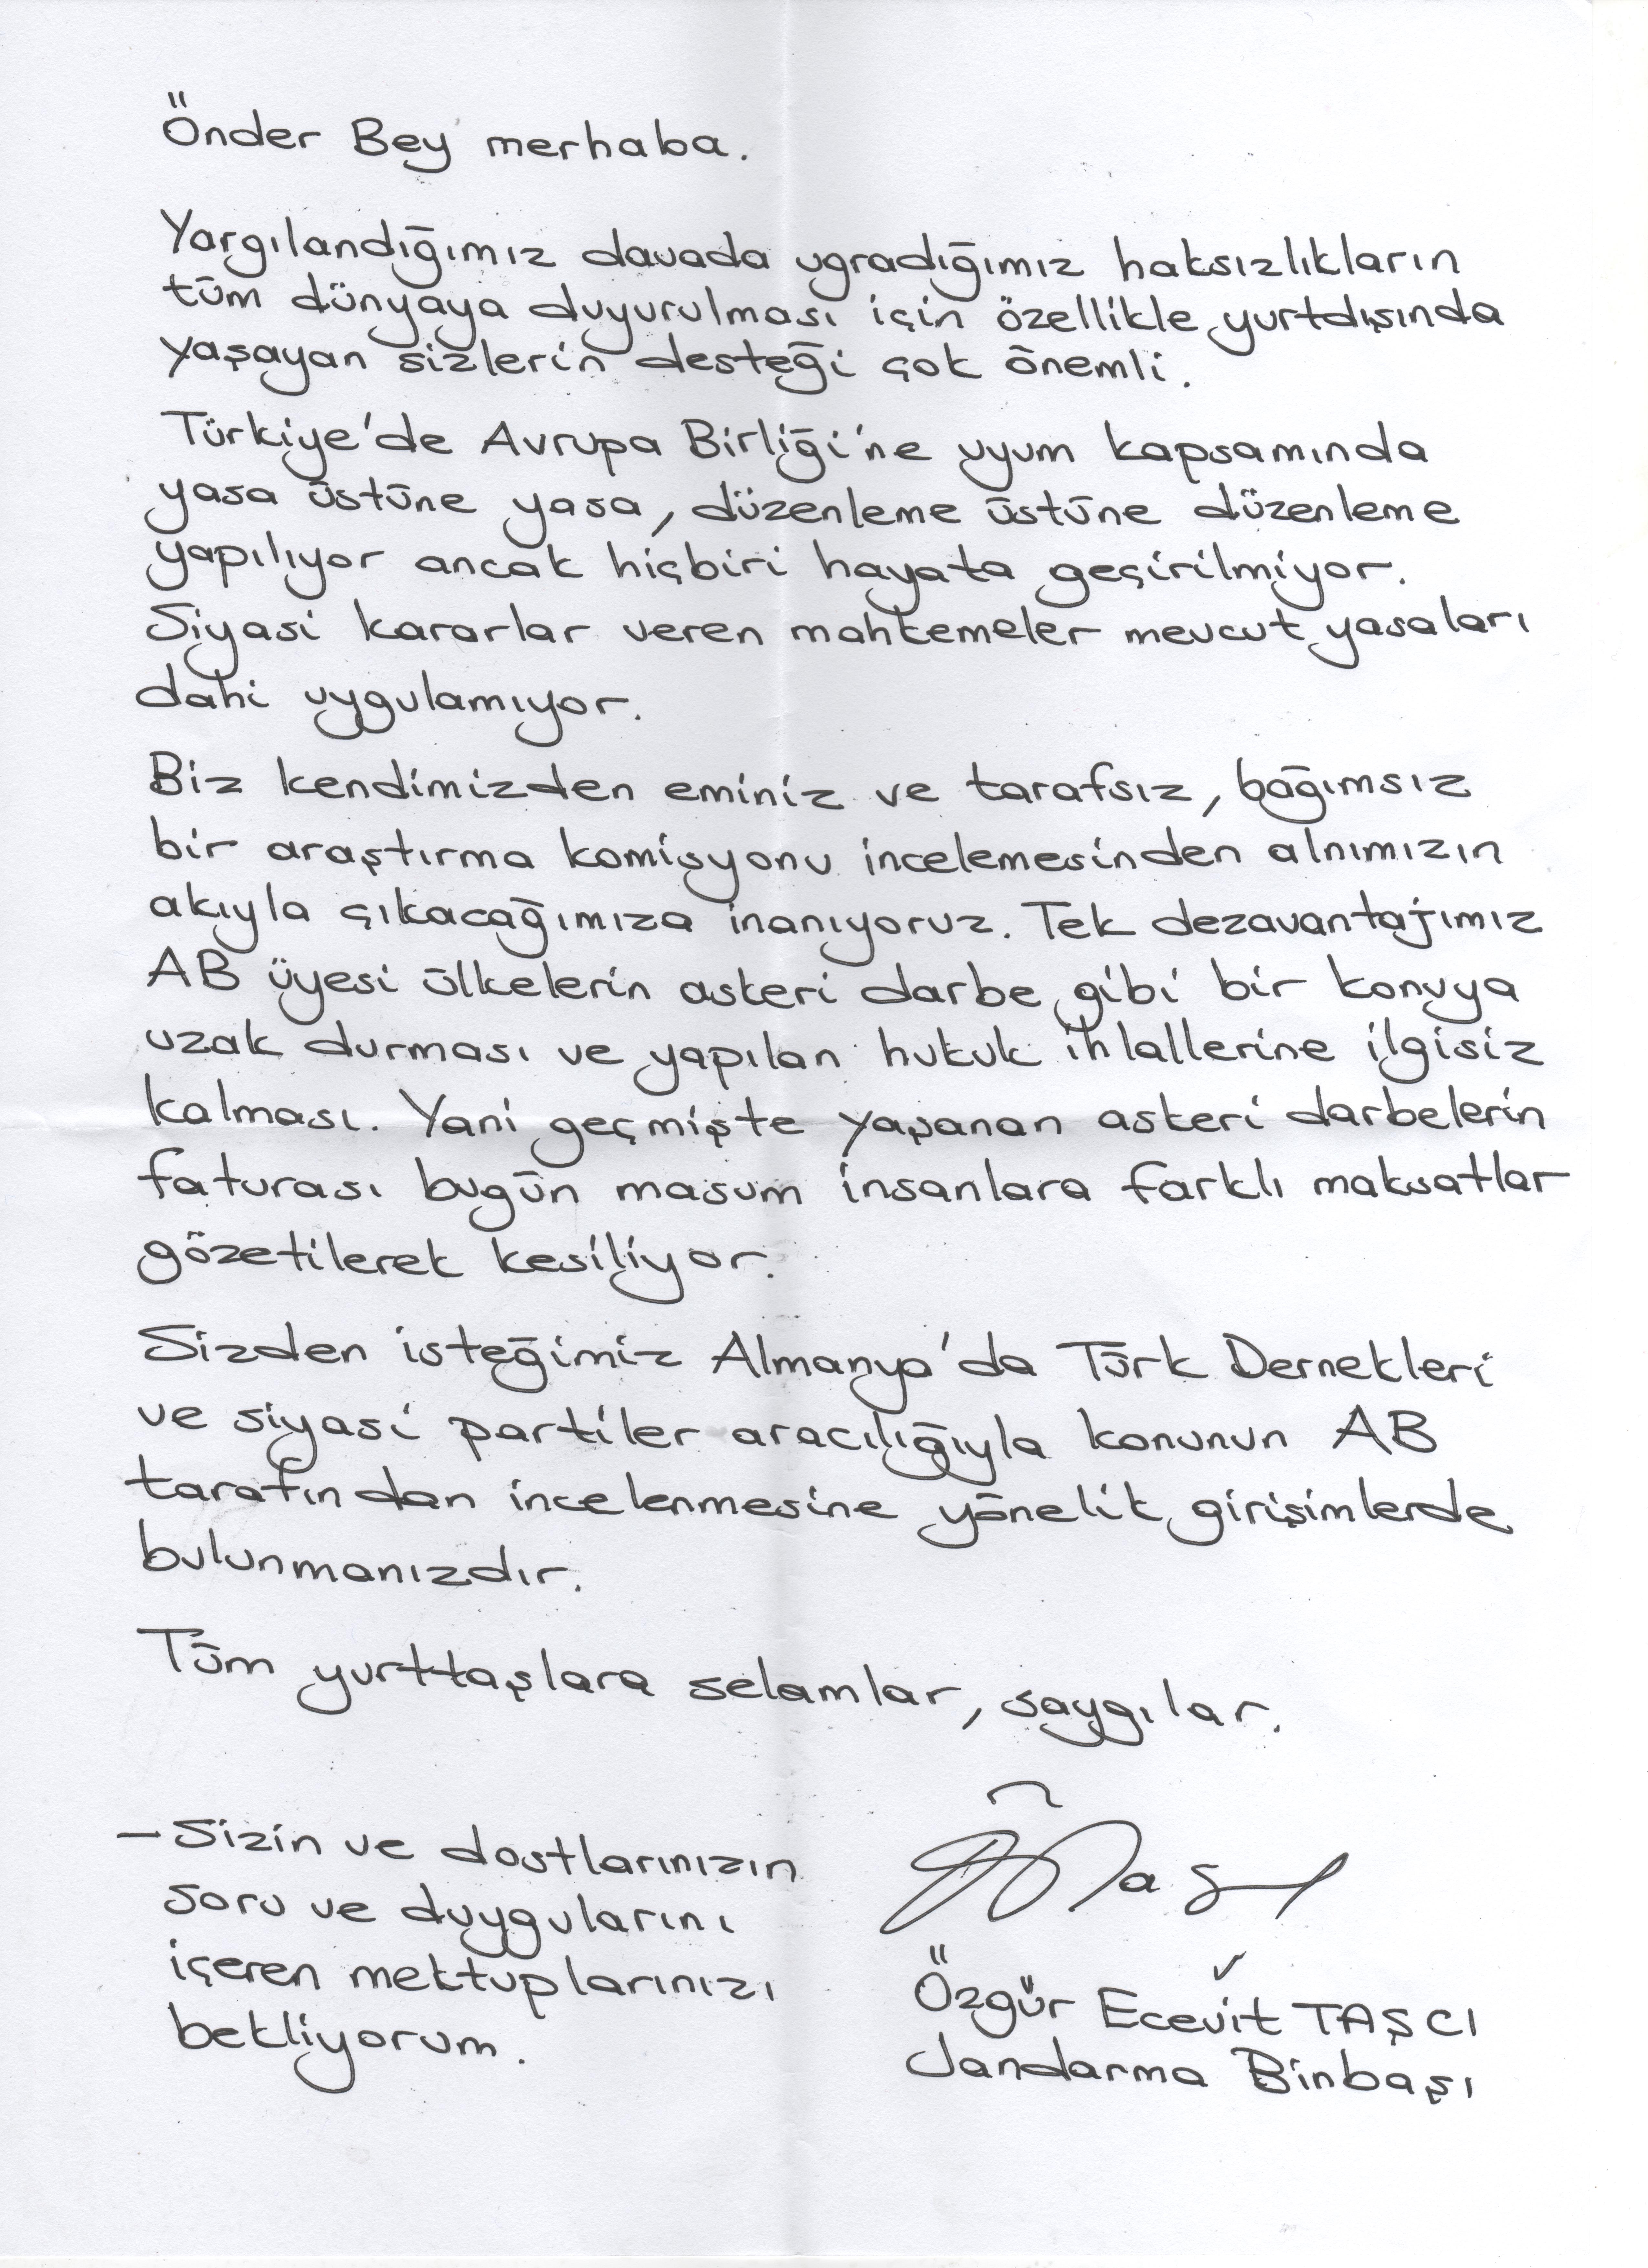 Önder Bey merhaba.
Yargılandığımız davada ugradığımız haksızlıkların
tüm dünyaya duyurulması için özellikle yurtdışında
yaşayan sizlerin desteği çok önemli.
Türkiye'de Avrupa Birliği'ne uyum kapsamında
yasa üstüne yasa, düzenleme üstüne düzenleme
yapılıyor ancak hiçbiri hayata geçirilmiyor.
Siyasi kararlar veren mahkemeler mevcut yasaları
dahi uygulamıyor.
Biz kendimizden eminiz ve tarafsız, bağımsız
bir araştırma komisyonu incelemesinden alnımızın
akıyla çıkacağımıza inanıyoruz. Tek dezavantajımız
AB üyesi ülkelerin askeri darbe gibi bir konuya
uzak durması ve yapılan hukuk ihlallerine ilgisiz
kalması. Yani geçmişte yaşanan askeri darbelerin
faturası bugün masum insanlara farklı maksatlar
gözetilerek kesiliyor.
Sizden isteğimiz Almanya'da Türk Dernekleri
ve siyasi partiler aracılığıyla konunun AB
tarafından incelenmesine yönelik girişimlerde
bulunmanızdır.
Tüm yurttaşlara selamlar, saygılar.
– Sizin ve dostlarınızın
soru ve duygularını
içeren mektuplarınızı
bekliyorum.
Özgür Ecevit TAŞCI
Jandarma Binbaşı